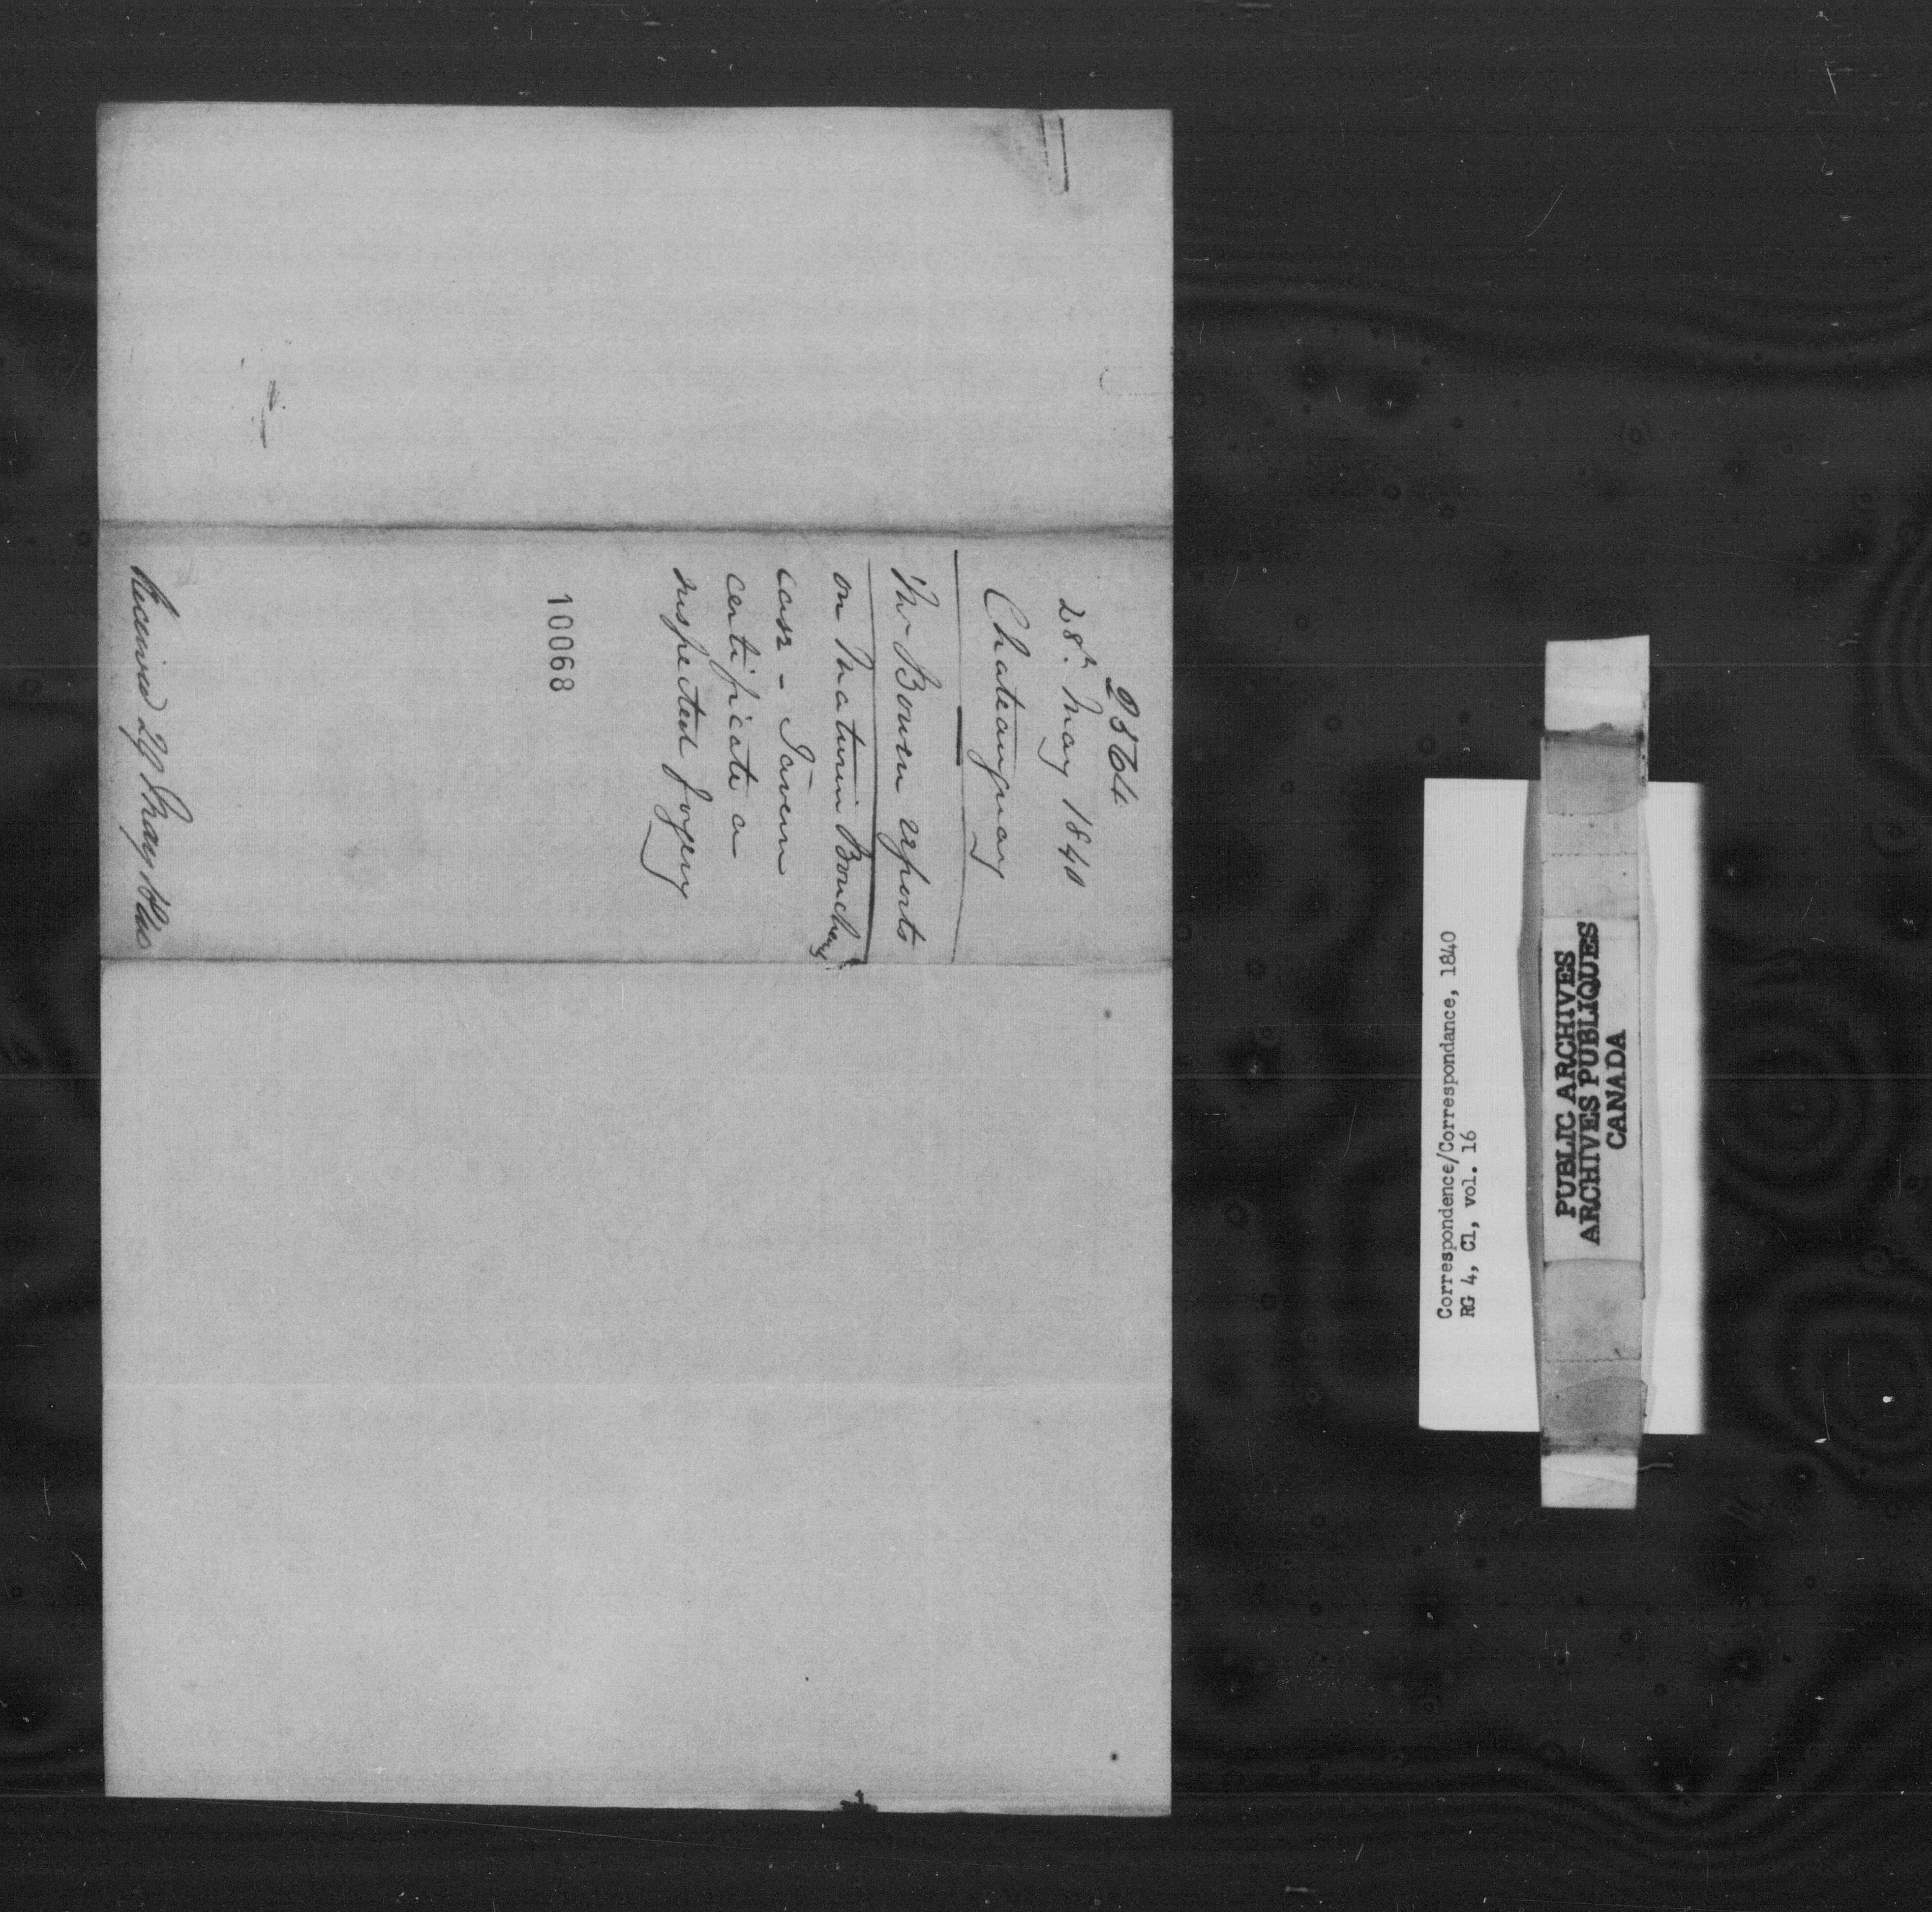 28th. May 1840
Chateauguay
Mr Bowen reports
on Maturin Bouchery's
case - Tavern
certificate a
suspected forgery
10068
Received 29 May 1840
Correspondence/Correspondance, 1840
RG 4, C1, vol. 16
PUBLIC ARCHIVES
ARCHIVES PUBLIQUES
CANADA